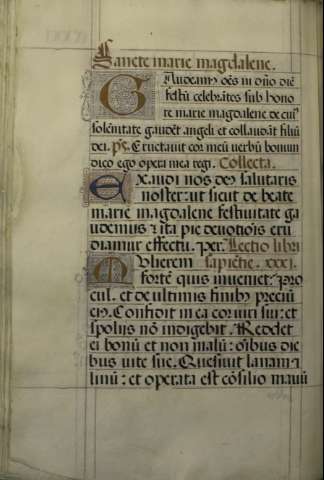 Sancte marie magdalene.
Gaudeam᷒ oēs in dn̄o diē
festū celebrātes sub hono
re marie magdalene de cui᷒
solēnitate gaudēt angeli et collaudāt filiū
dei. p̄s. Eructauit cor meū uerbū bonum
dico ego opera mea regi. Collecta.
Exaudi nos de᷒ salutaris
noster: ut sicut de beate
marie magdalene festiuitate ga
udemus: ita pie deuotiōis eru
diamur effectu. per. Lectio libri
Mulierem sapiētie. xxxi.
fortē quis inueniet: pro
cul. et de ultimis finib᷒ preciū
ei᷒. Confidit in ea cor uiri sui: et
spoliis nō indigebit. Reddet
ei bonū et non malū: oībus die
bus uite sue. Quesiuit lanam ⁊
linū: et operata est cōsilio manū